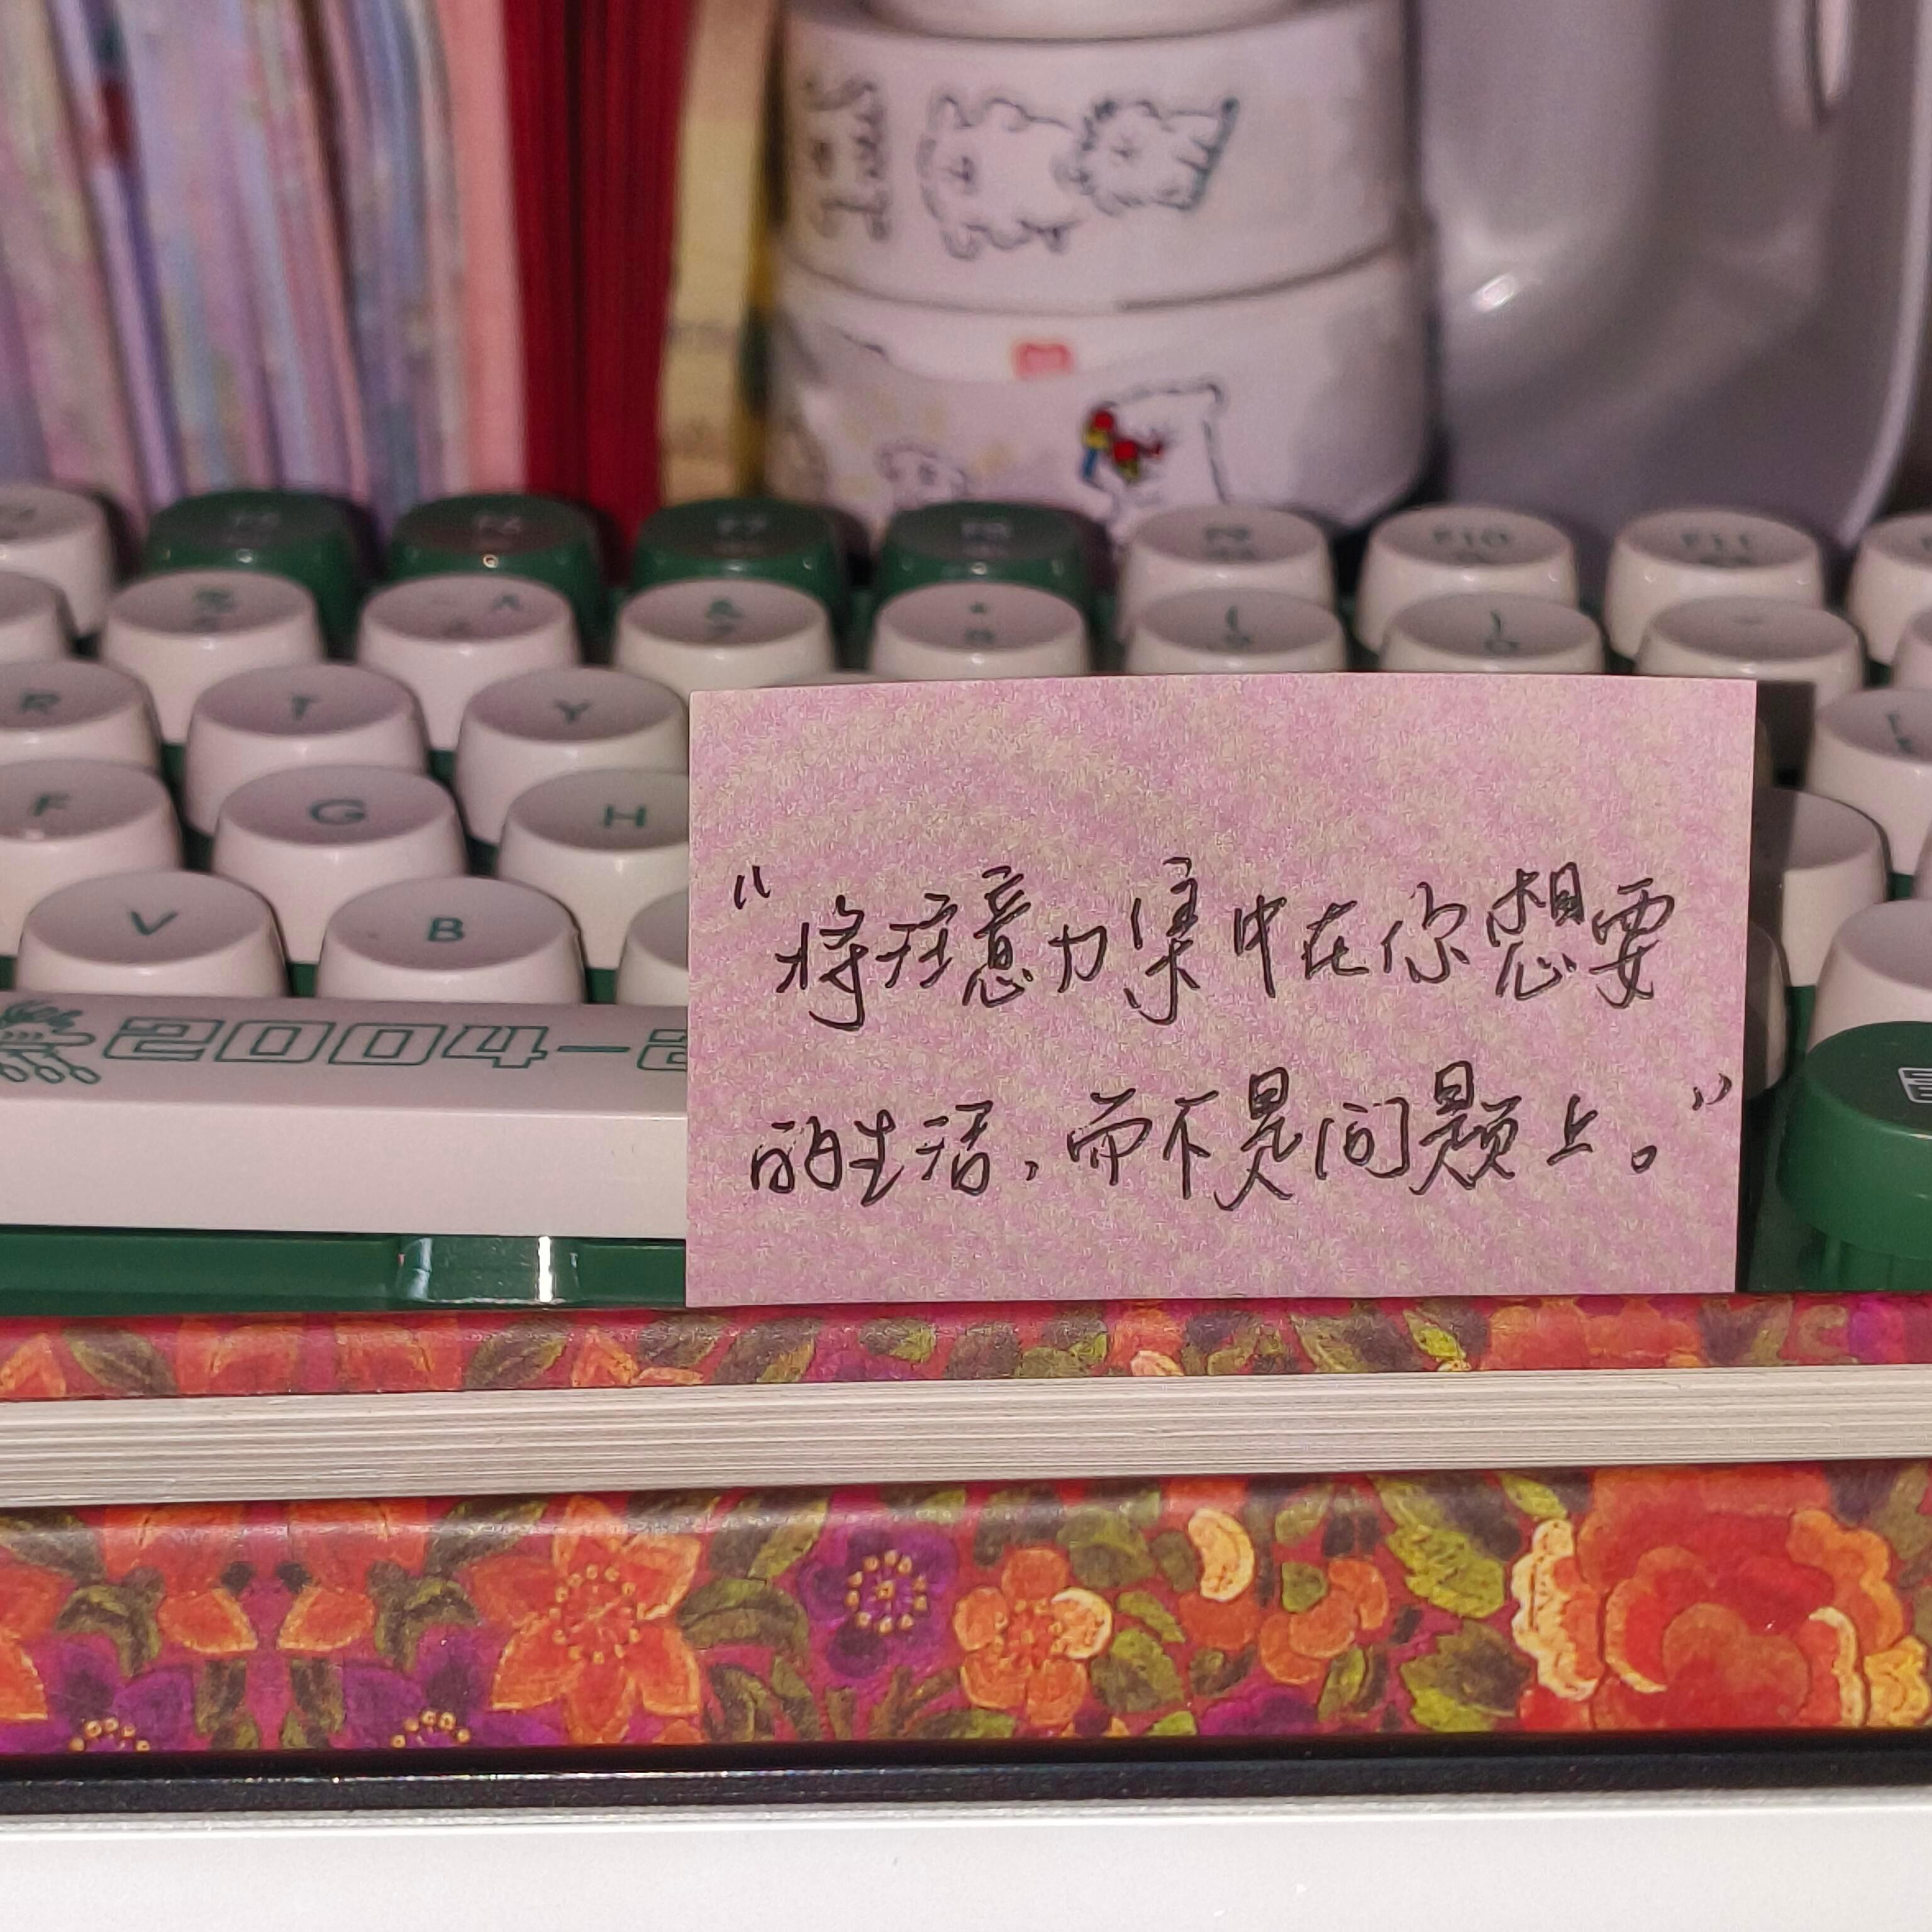 F10
F11
R
T
Y
F
G
H
V
B
2004-2
“将注意力集中在你想要
的生活，而不是问题上。”